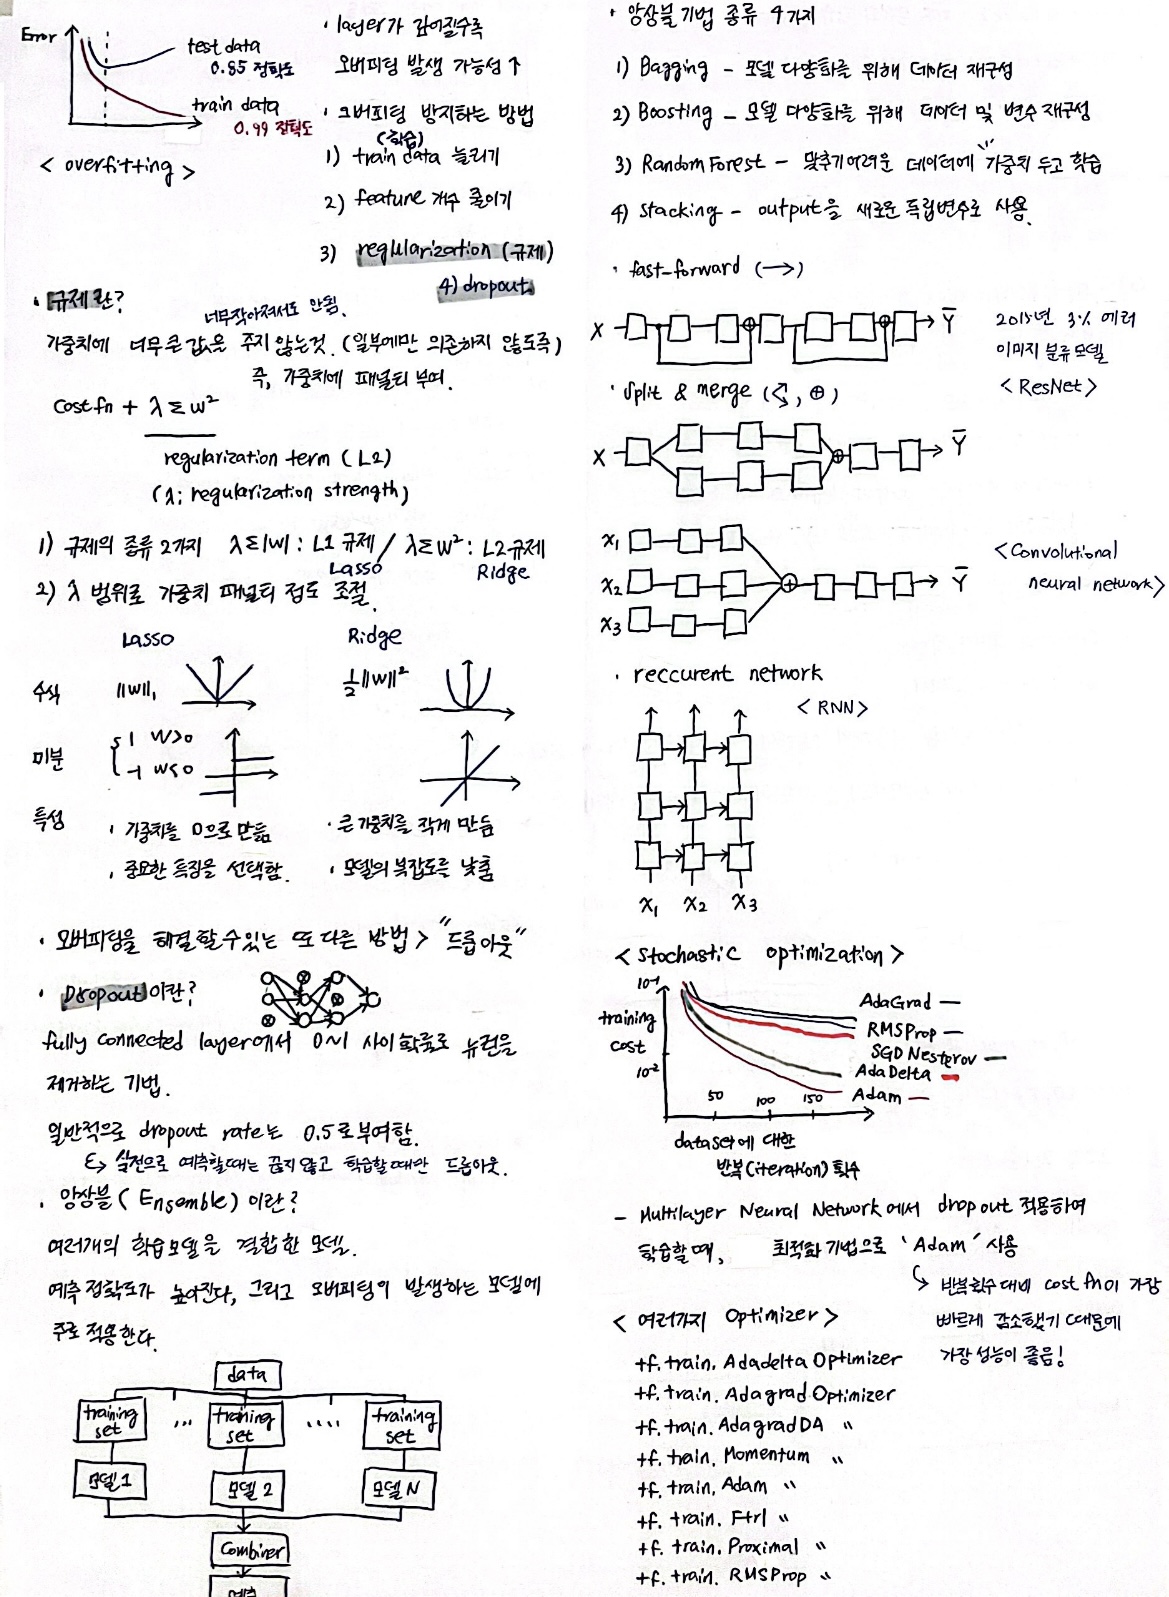 Error
test data
0.85 정확도
train data
0.99 정확도
< overfitting >
· layer가 깊어질수록
오버피팅 발생 가능성 ↑
· 오버피팅 방지하는 방법
(학습)
1) train data 늘리기
2) feature 개수 줄이기
3) regularization (규제)
4) dropout
· 규제란?
너무작아져서도 안됨.
가중치에 너무 큰 값을 주지 않는것. (일부에만 의존하지 않도록)
즉, 가중치에 패널티 부여.
Cost fn + λ Σ w²
regularization term (L2)
(λ: regularization strength)
1) 규제의 종류 2가지 λΣ|w| : L1 규제 / λΣw² : L2규제
Lasso Ridge
2) λ 범위로 가중치 패널티 정도 조절.
Lasso Ridge
수식 ||w||₁ ½||w||²
미분 { 1 W>0
-1 W<0
특성
· 가중치를 0으로 만듦 · 큰 가중치를 작게 만듦
· 중요한 특징을 선택함. · 모델의 복잡도를 낮춤
· 오버피팅을 해결할수있는 또 다른 방법 > "드롭아웃"
· Dropout이란?
fully connected layer에서 0~1 사이 확률로 뉴런을
제거하는 기법.
일반적으로 dropout rate는 0.5로 부여함.
↳ 실전으로 예측할때는 끊지 않고 학습할때만 드롭아웃.
· 앙상블 (Ensemble) 이란?
여러개의 학습모델을 결합한 모델.
예측 정확도가 높아진다, 그리고 오버피팅이 발생하는 모델에
주로 적용한다.
data
training set ... training set .... training set
모델 1 모델 2 모델 N
Combiner
예측
· 앙상블 기법 종류 4가지
1) Bagging - 모델 다양화를 위해 데이터 재구성
2) Boosting - 모델 다양화를 위해 데이터 및 변수 재구성
3) Random Forest - 맞추기어려운 데이터에 "가중치 두고 학습
4) Stacking - output을 새로운 독립변수로 사용.
· fast-forward (→)
X Y̅
2015년 3% 에러
이미지 분류모델
< ResNet >
· split & merge (⊕)
X Y̅
X₁
X₂ Y̅
X₃
< Convolutional
neural network >
· reccurent network
< RNN >
X₁ X₂ X₃
< Stochastic optimization >
10⁻¹
training
cost
10⁻²
AdaGrad —
RMSProp —
SGD Nesterov —
AdaDelta —
Adam —
50 100 150
dataset에 대한
반복(iteration) 횟수
- Multilayer Neural Network에서 dropout 적용하여
학습할 때, 최적화 기법으로 'Adam' 사용
↳ 반복횟수 대비 cost fn이 가장
빠르게 감소했기 때문에
가장 성능이 좋음!
< 여러가지 Optimizer >
tf. train. Adadelta Optimizer
tf. train. Adagrad Optimizer
tf. train. AdagradDA 〃
tf. train. Momentum 〃
tf. train. Adam 〃
tf. train. Ftrl 〃
tf. train. Proximal 〃
tf. train. RMSProp 〃